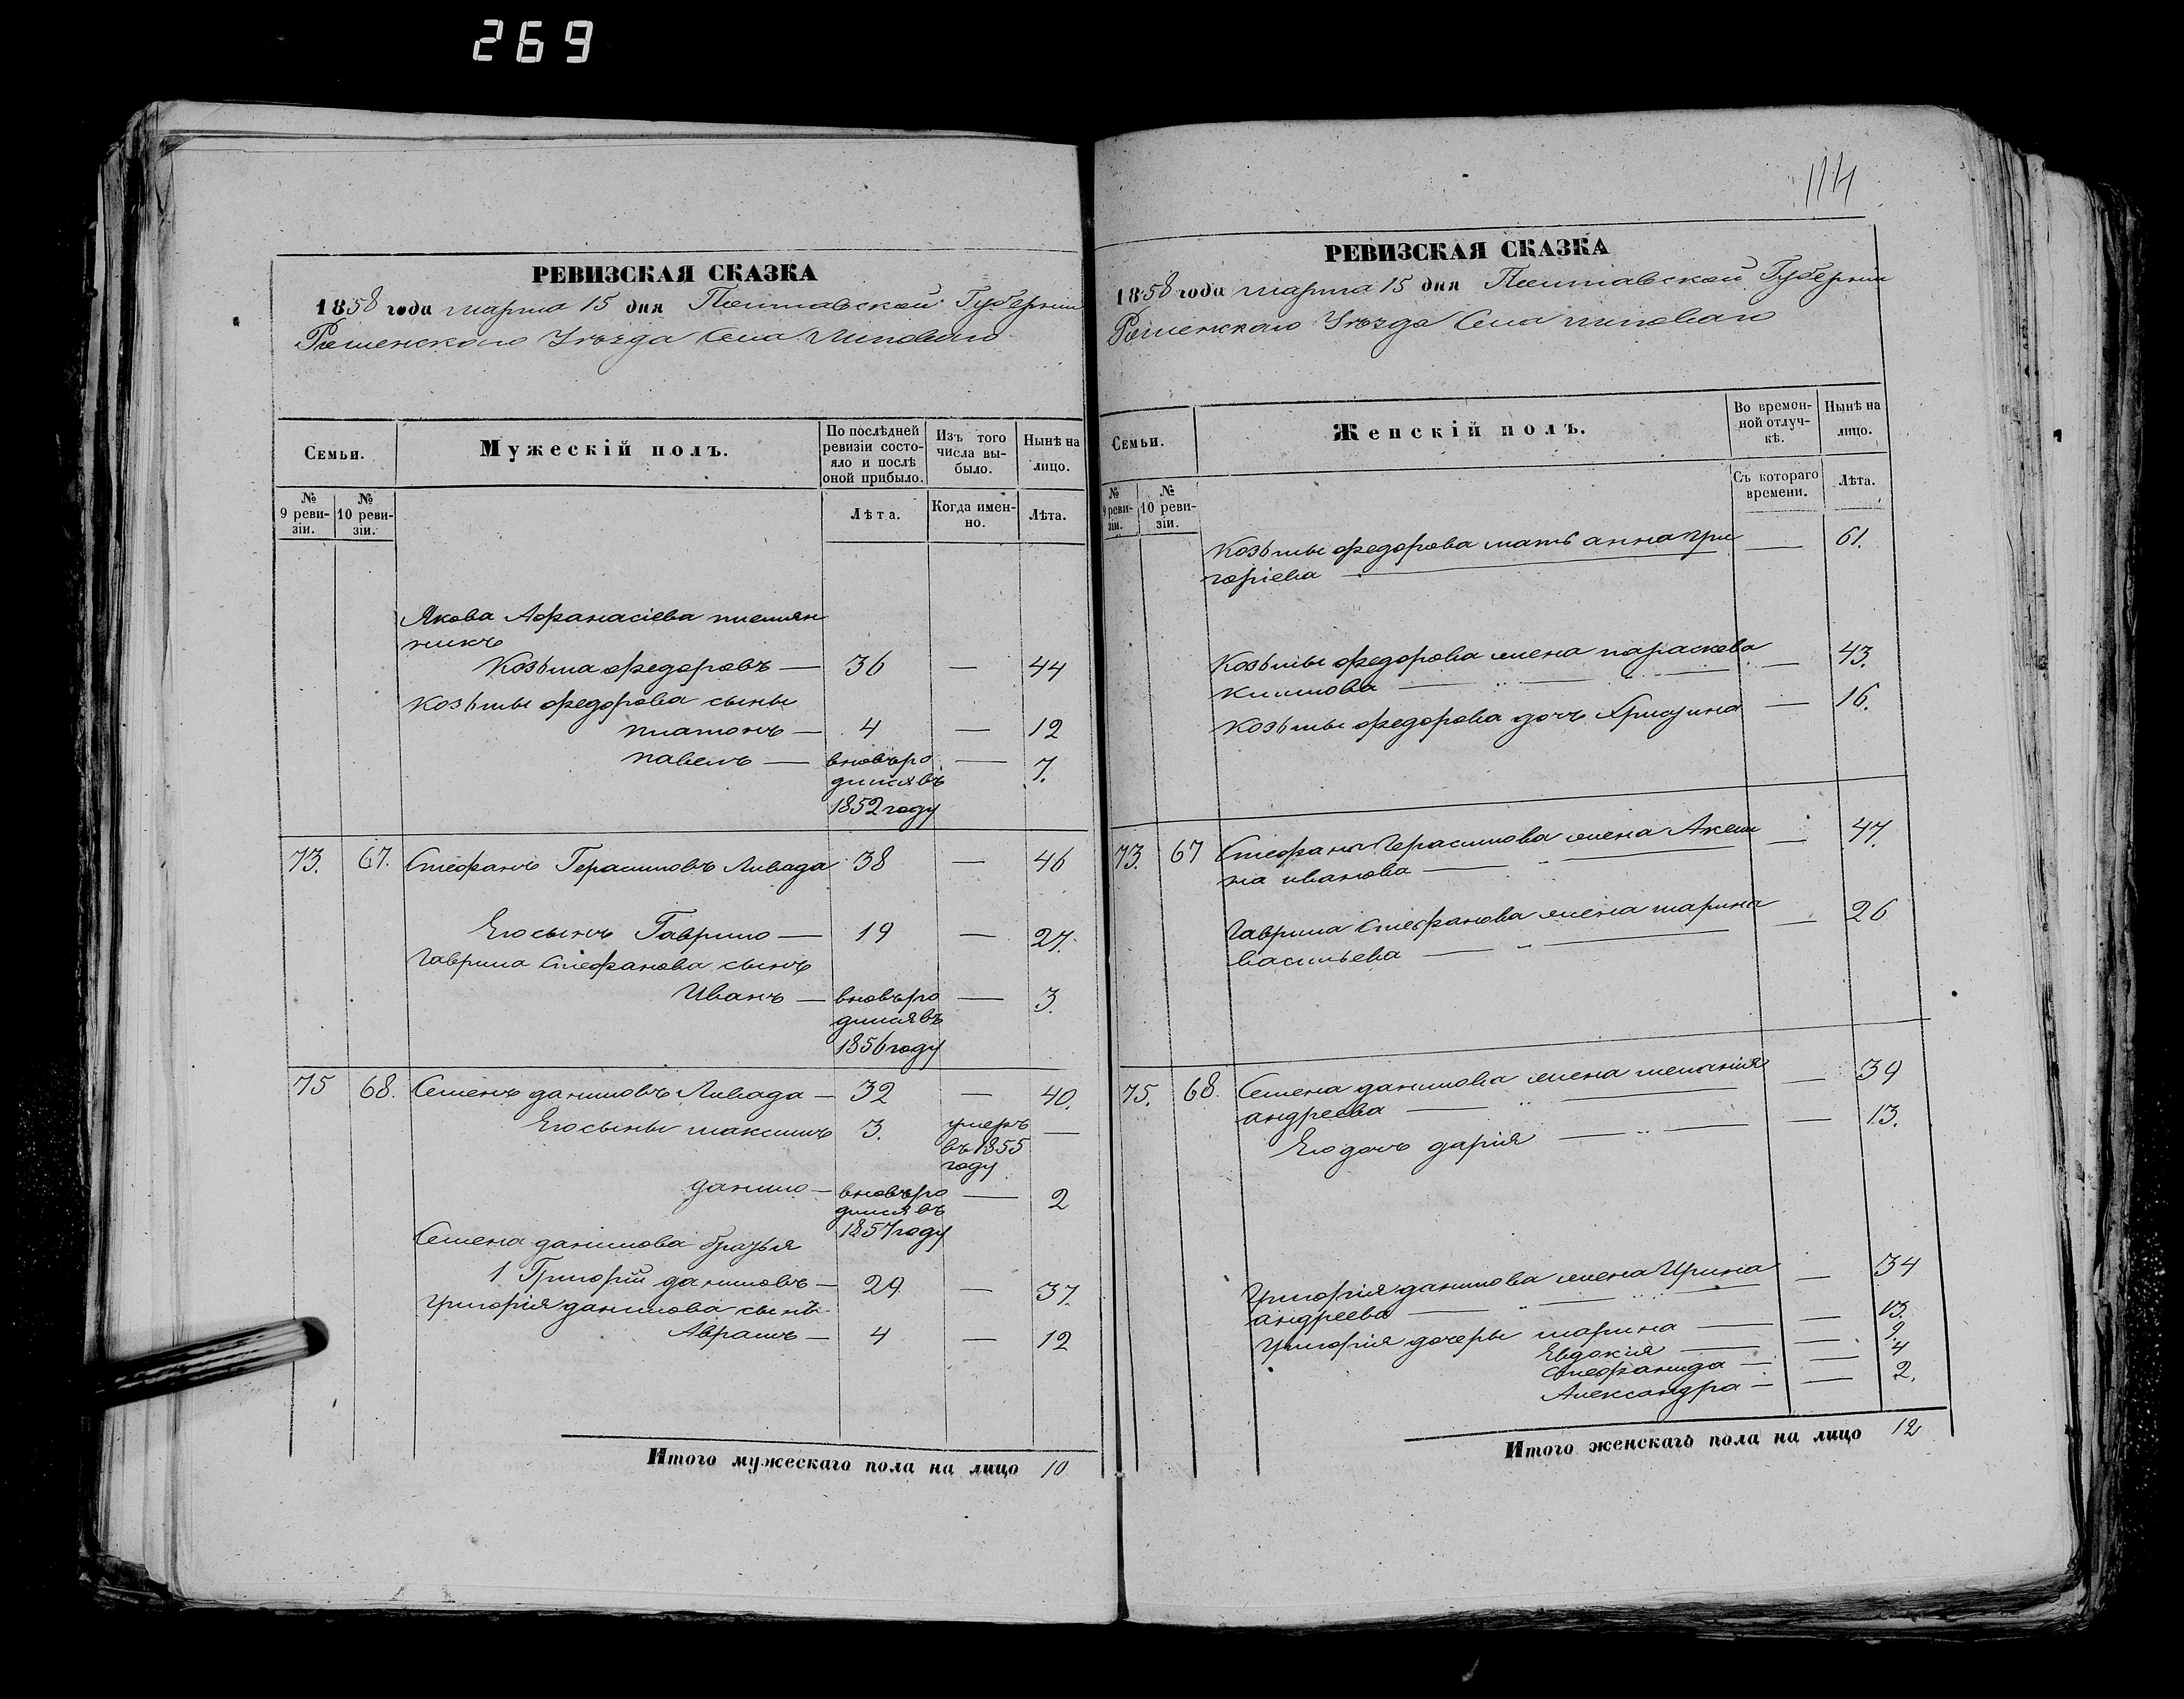 269
РЕВИЗСКАЯ СКАЗКА
1858 года марта 15 дня Полтавской Губерніи
Роменскаго Уѣзда Села Липоваго
Семьи.
Мужескій полъ.
По послѣдней ревизіи состояло и послѣ оной прибыло.
Изъ того числа выбыло.
Нынѣ на лицо.
№ 9 ревизіи.
№ 10 ревизіи.
Лѣта.
Когда именно.
Лѣта.
Якова Афанасіева племян
никъ
Козьма федоровъ — 36 — 44
Козьмы федорова сыны
платонъ — 4 — 12
павелъ — вновьро — 7.
дилсявъ
1852 году
73. 67. Стефанъ Герасимовъ Ливада 38 — 46
Его сынъ Гаврило — 19 — 27.
Гаврила Стефанова сынъ
Иванъ — вновьро — 3.
дилсявъ
1856 году
75 68. Семенъ даниловъ Ливада — 32 — 40.
Его сыны максимъ 3. умеръ —
въ 1855
году
данило — вновьро — 2
дился въ
1857 году
Семена данилова братья
1 Григорій даниловъ — 29. — 37.
григорія данилова сынъ
Аврамъ — 4 — 12
Итого мужескаго пола на лицо 10
114
РЕВИЗСКАЯ СКАЗКА
1858 года марта 15 дня Полтавской Губерніи
Роменскаго Уѣзда Села липоваго
Семьи.
Женскій полъ.
Во временной отлучкѣ.
Нынѣ на лицо.
№ 9 ревизіи.
№ 10 ревизіи.
Съ котораго времени.
Лѣта.
Козьмы федорова мать анна гри — 61.
горіева —
Козьмы федорова жена параскева — 43.
климова —
Козьмы федорова дочь Христина — 16.
73. 67 Стефана Герасимова жена Акели — 47.
на иванова —
Гаврила Стефанова жена марина — 26
васильева —
75. 68. Семена данилова жена меланія — 39
андреева —
Его дочь дарія — 13.
григорія данилова жена Ирина — 34
андреева —
григорія дочеры марина — 13.
Евдокія — 9.
Стефанида — 4
Александра — 2.
Итого женскаго пола на лицо 12